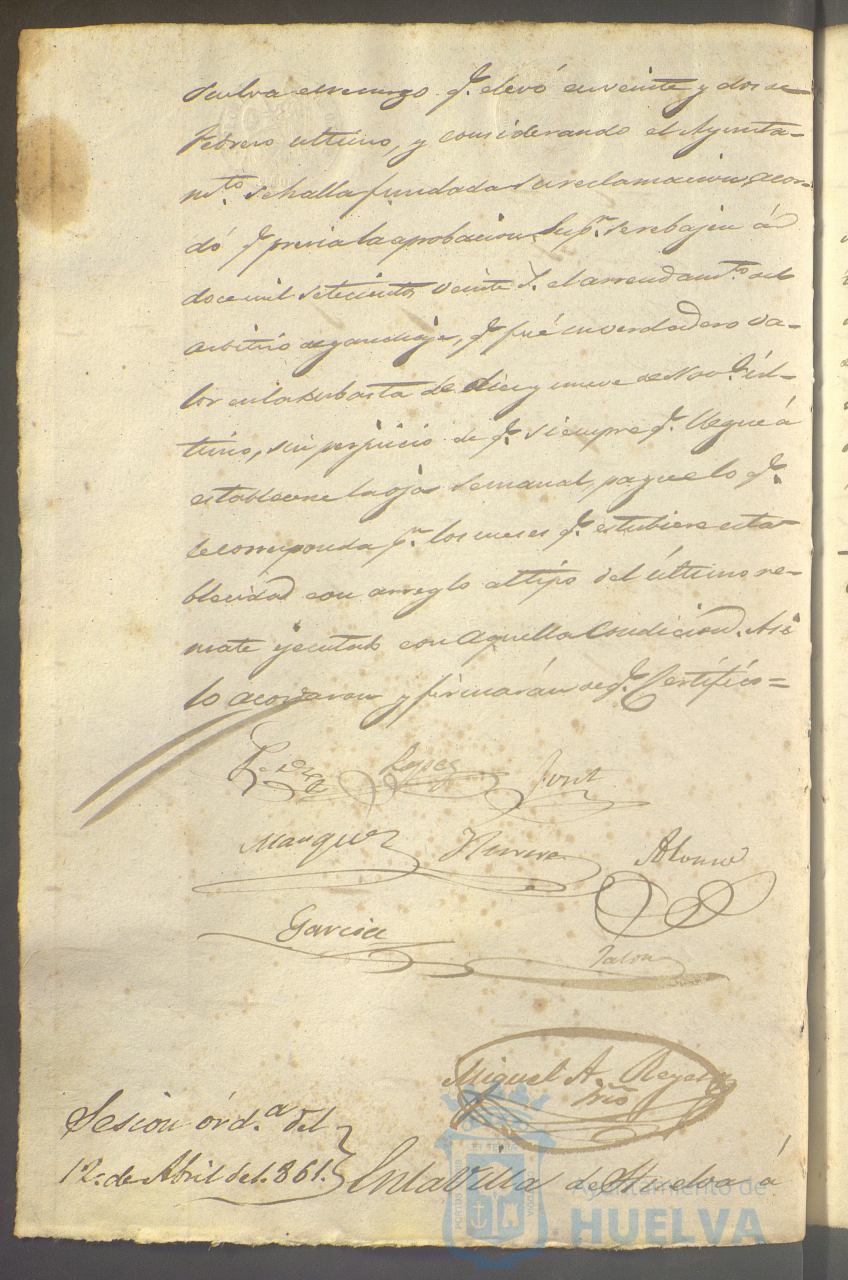 suelva el recurso q.e elevó en veinte y dos de
Febrero ultimo, y considerando el Ayunta-
m.to se halla fundada su reclamacion, acor-
dó q.e previa la aprobacion Sup.r se rebajen á
doce mil setecientos veinte r.s el arrendam.to del
arbitrio de ganchaje, q.e fué su verdadero va-
lor en la subasta de diez y nueve de Nov.e úl-
timo, sin perjuicio de q.e siempre q.e llegue á
establecerse la oja semanal, pague lo q.e
le corresponda p.r los meses q.e estubiere esta-
blecida con arreglo al tipo del último re-
mate ejecutado con aquella condicion. Asi
lo acordaron y firmarán de q.e Certifico=
Lopez Font
Marquez Herrera Alonso
Garcia
Miguel A. Reyes
Srio
Sesion órd.a del
12. de Abril de 1.861. En la Villa de Huelva á
Ayuntamiento de
HUELVA